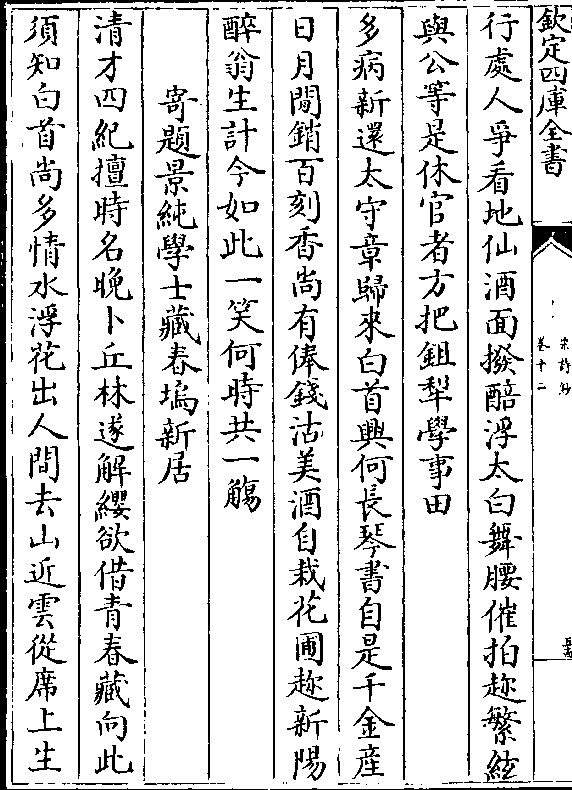 欽定四庫全書
宋詩鈔
卷十二
行處人爭看地仙酒面撥醅浮太白舞腰催拍趂繁絃
與公等是休官者方把鉏犂學事田
多病新還太守章歸來白首興何長琴書自是千金産
日月閒銷百刻香尚有俸錢沽美酒自栽花圃趂新陽
醉翁生計今如此一笑何時共一觴
寄題景純學士藏春塢新居
清才四紀擅時名晚卜丘林遂解纓欲借青春藏向此
須知白首尚多情水浮花出人間去山近雲從席上生